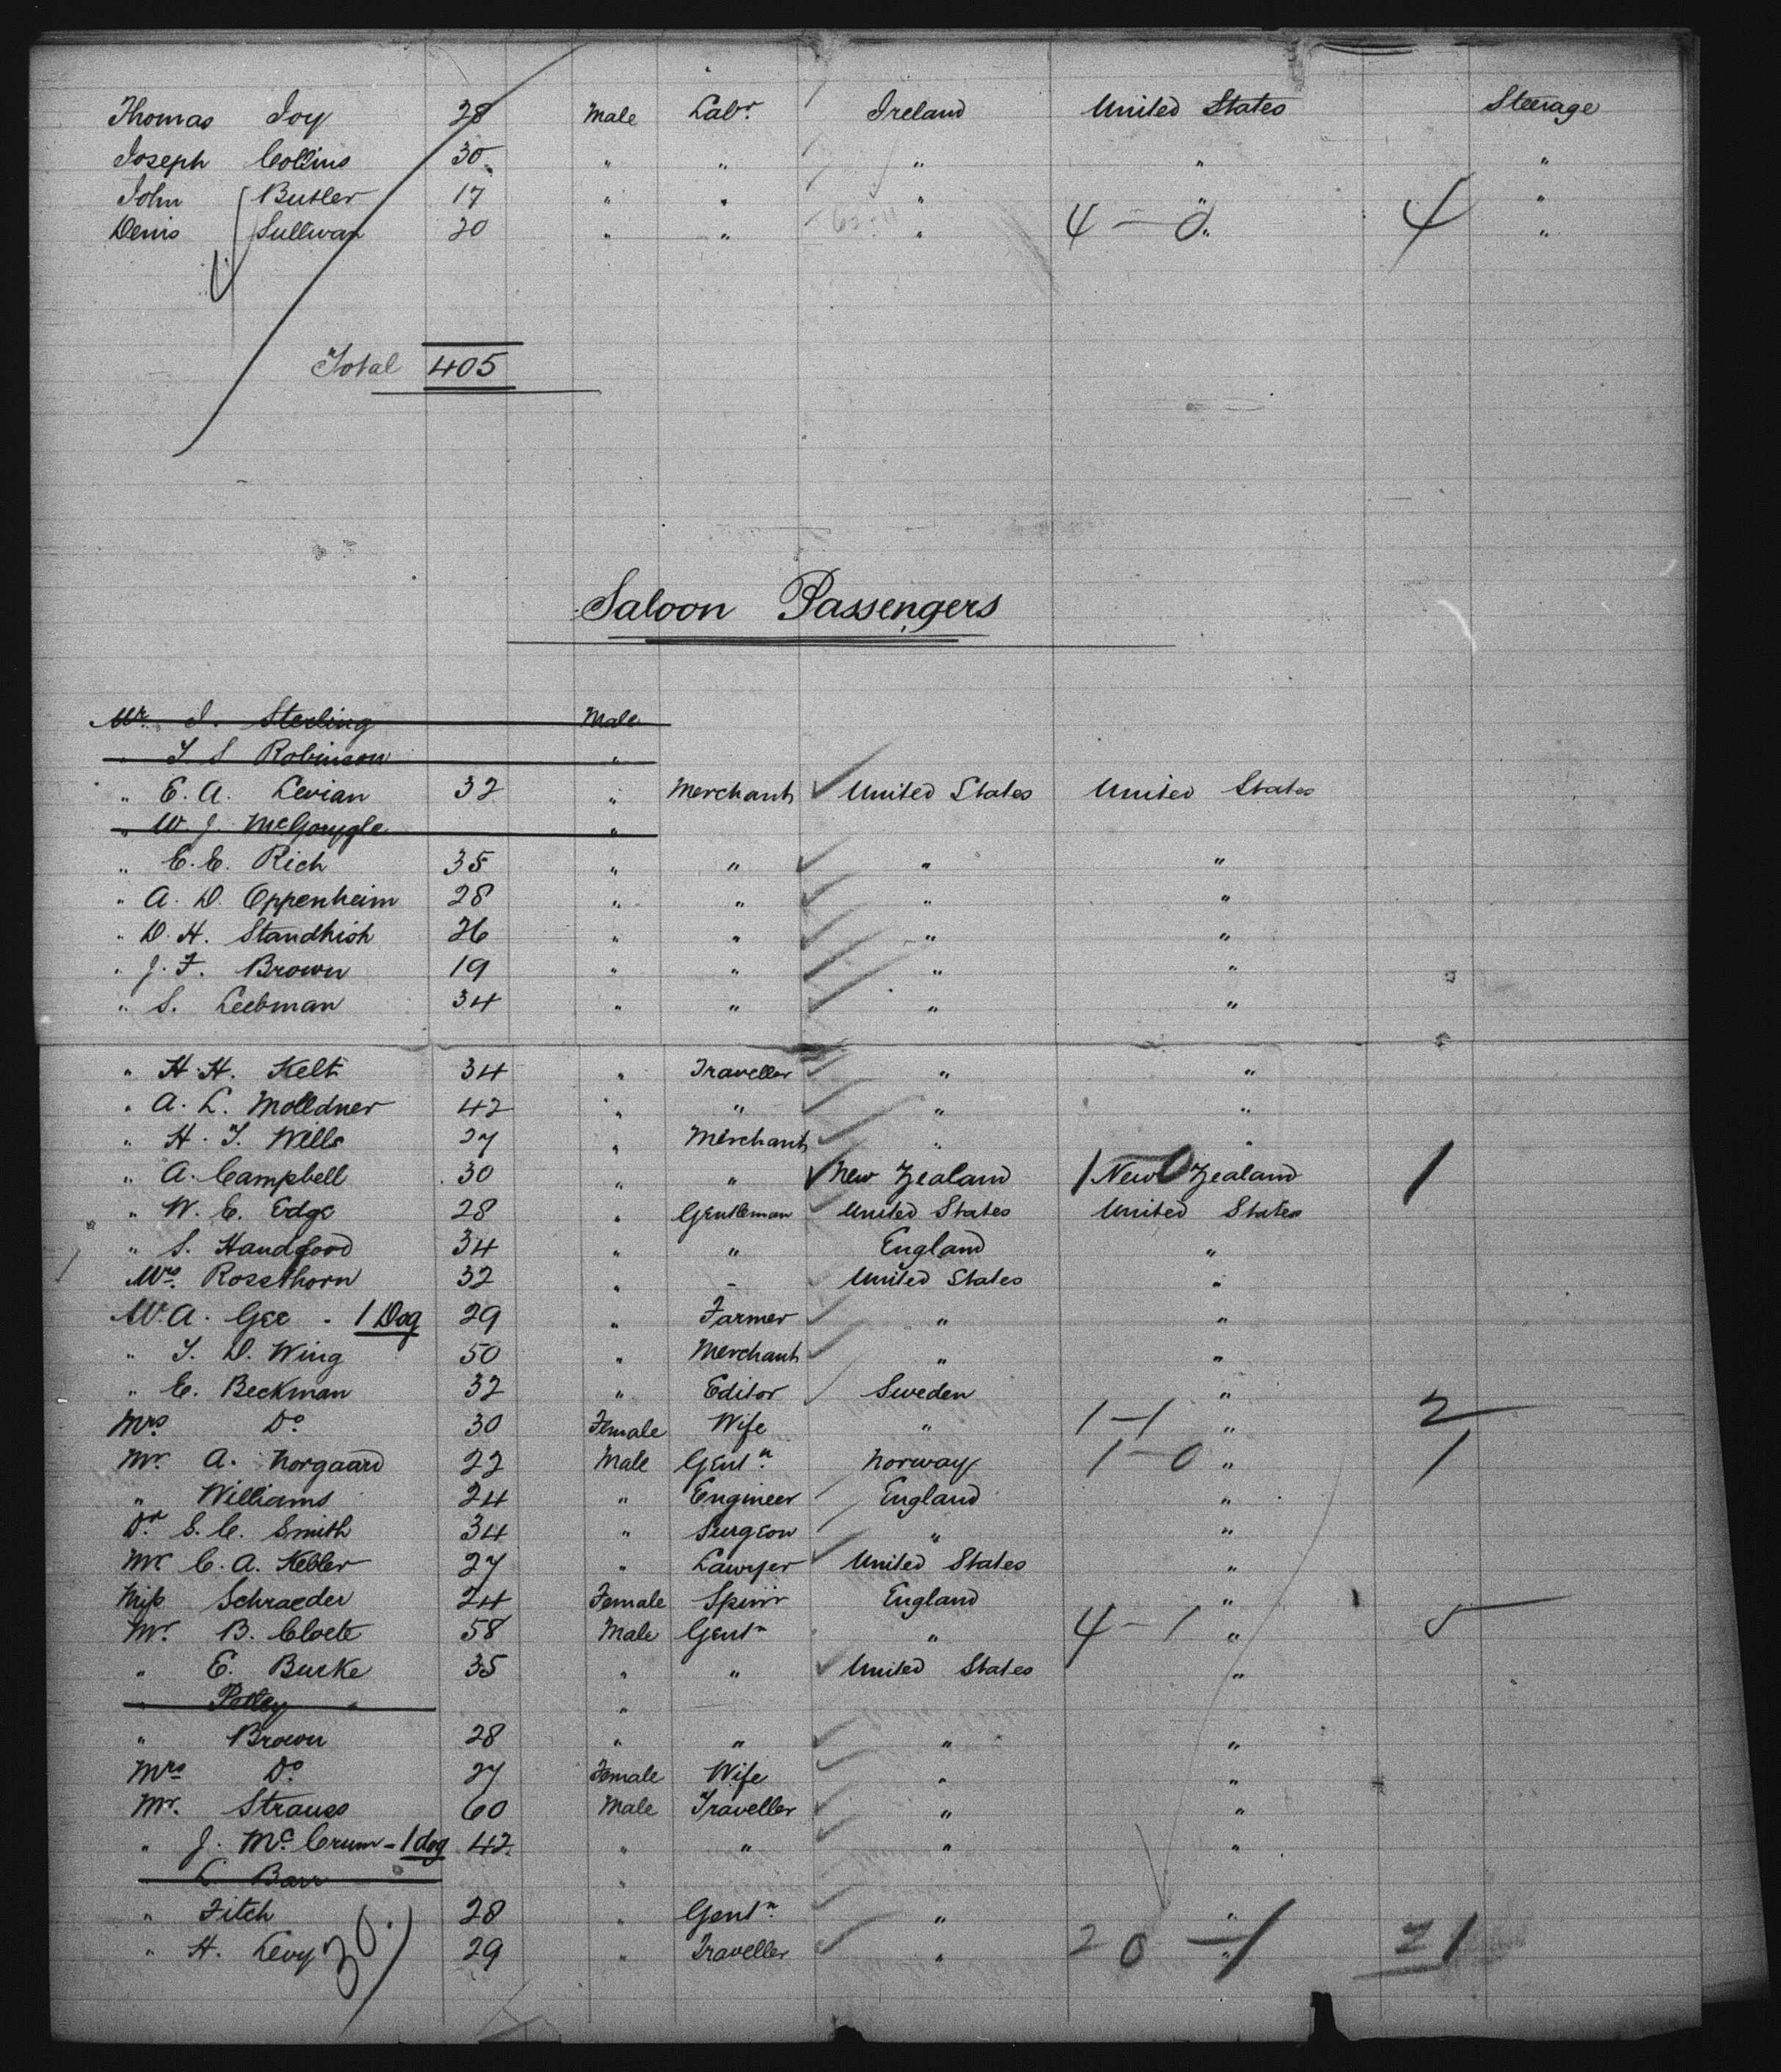 Thomas Joy 28 Male Labr. Ireland United States Steerage
Joseph Collins 30 " " " " "
John Butler 17 " " " " "
Denis Sullivan 20 " " " 4 — 0 " 4 "
Total 405
Saloon Passengers
Mr. J. Sterling Male
" T S Robinson "
" E. A. Levian 32 " Merchant United States United States
" W. J. McGorygle "
" E. E. Rich 35 " " " "
" A. D. Oppenheim 28 " " " "
" D. H. Standhish 26 " " " "
" J. F. Brown 19 " " " "
" S. Leebman 34 " " " "
" H. H. Kelt 34 " Traveller " "
" A. L. Molldner 42 " " " "
" H. T. Wills 27 " Merchant " "
" A. Campbell 30 " " New Zealand 1 — 0 New Zealand 1
" W. E. Edge 28 " Gentleman United States United States
" S. Handford 34 " " England "
Mrs. Rosethorn 32 " - United States "
Mr. A. Gee - 1 Dog 29 " Farmer " "
" T. D. Wing 50 " Merchant " "
" E. Beckman 32 " Editor Sweden "
Mrs. Do. 30 Female Wife " 1 — 1 " 2
Mr. A. Norgaard 22 Male Gentn. Norway 1 — 0 " 1
" Williams 24 " Engineer England "
Dr. S. C. Smith 34 " Surgeon " "
Mr C. A. Kebler 27 " Lawyer United States "
Miss Schraeder 24 Female Spinr England "
Mr. B. Cloete 58 Male Gentn " 4 — 1 " 5
" E. Burke 35 " " United States "
" Potley "
" Brown 28 " " " "
Mrs Do. 27 Female Wife " "
Mr. Strauss 60 Male Traveller " "
" J. McCrum - 1 dog 42 " " " "
" L. Barr "
" Fitch 28 " Gentn. " "
" H. Levy 30. 29 " Traveller " 20 — 1 " 21